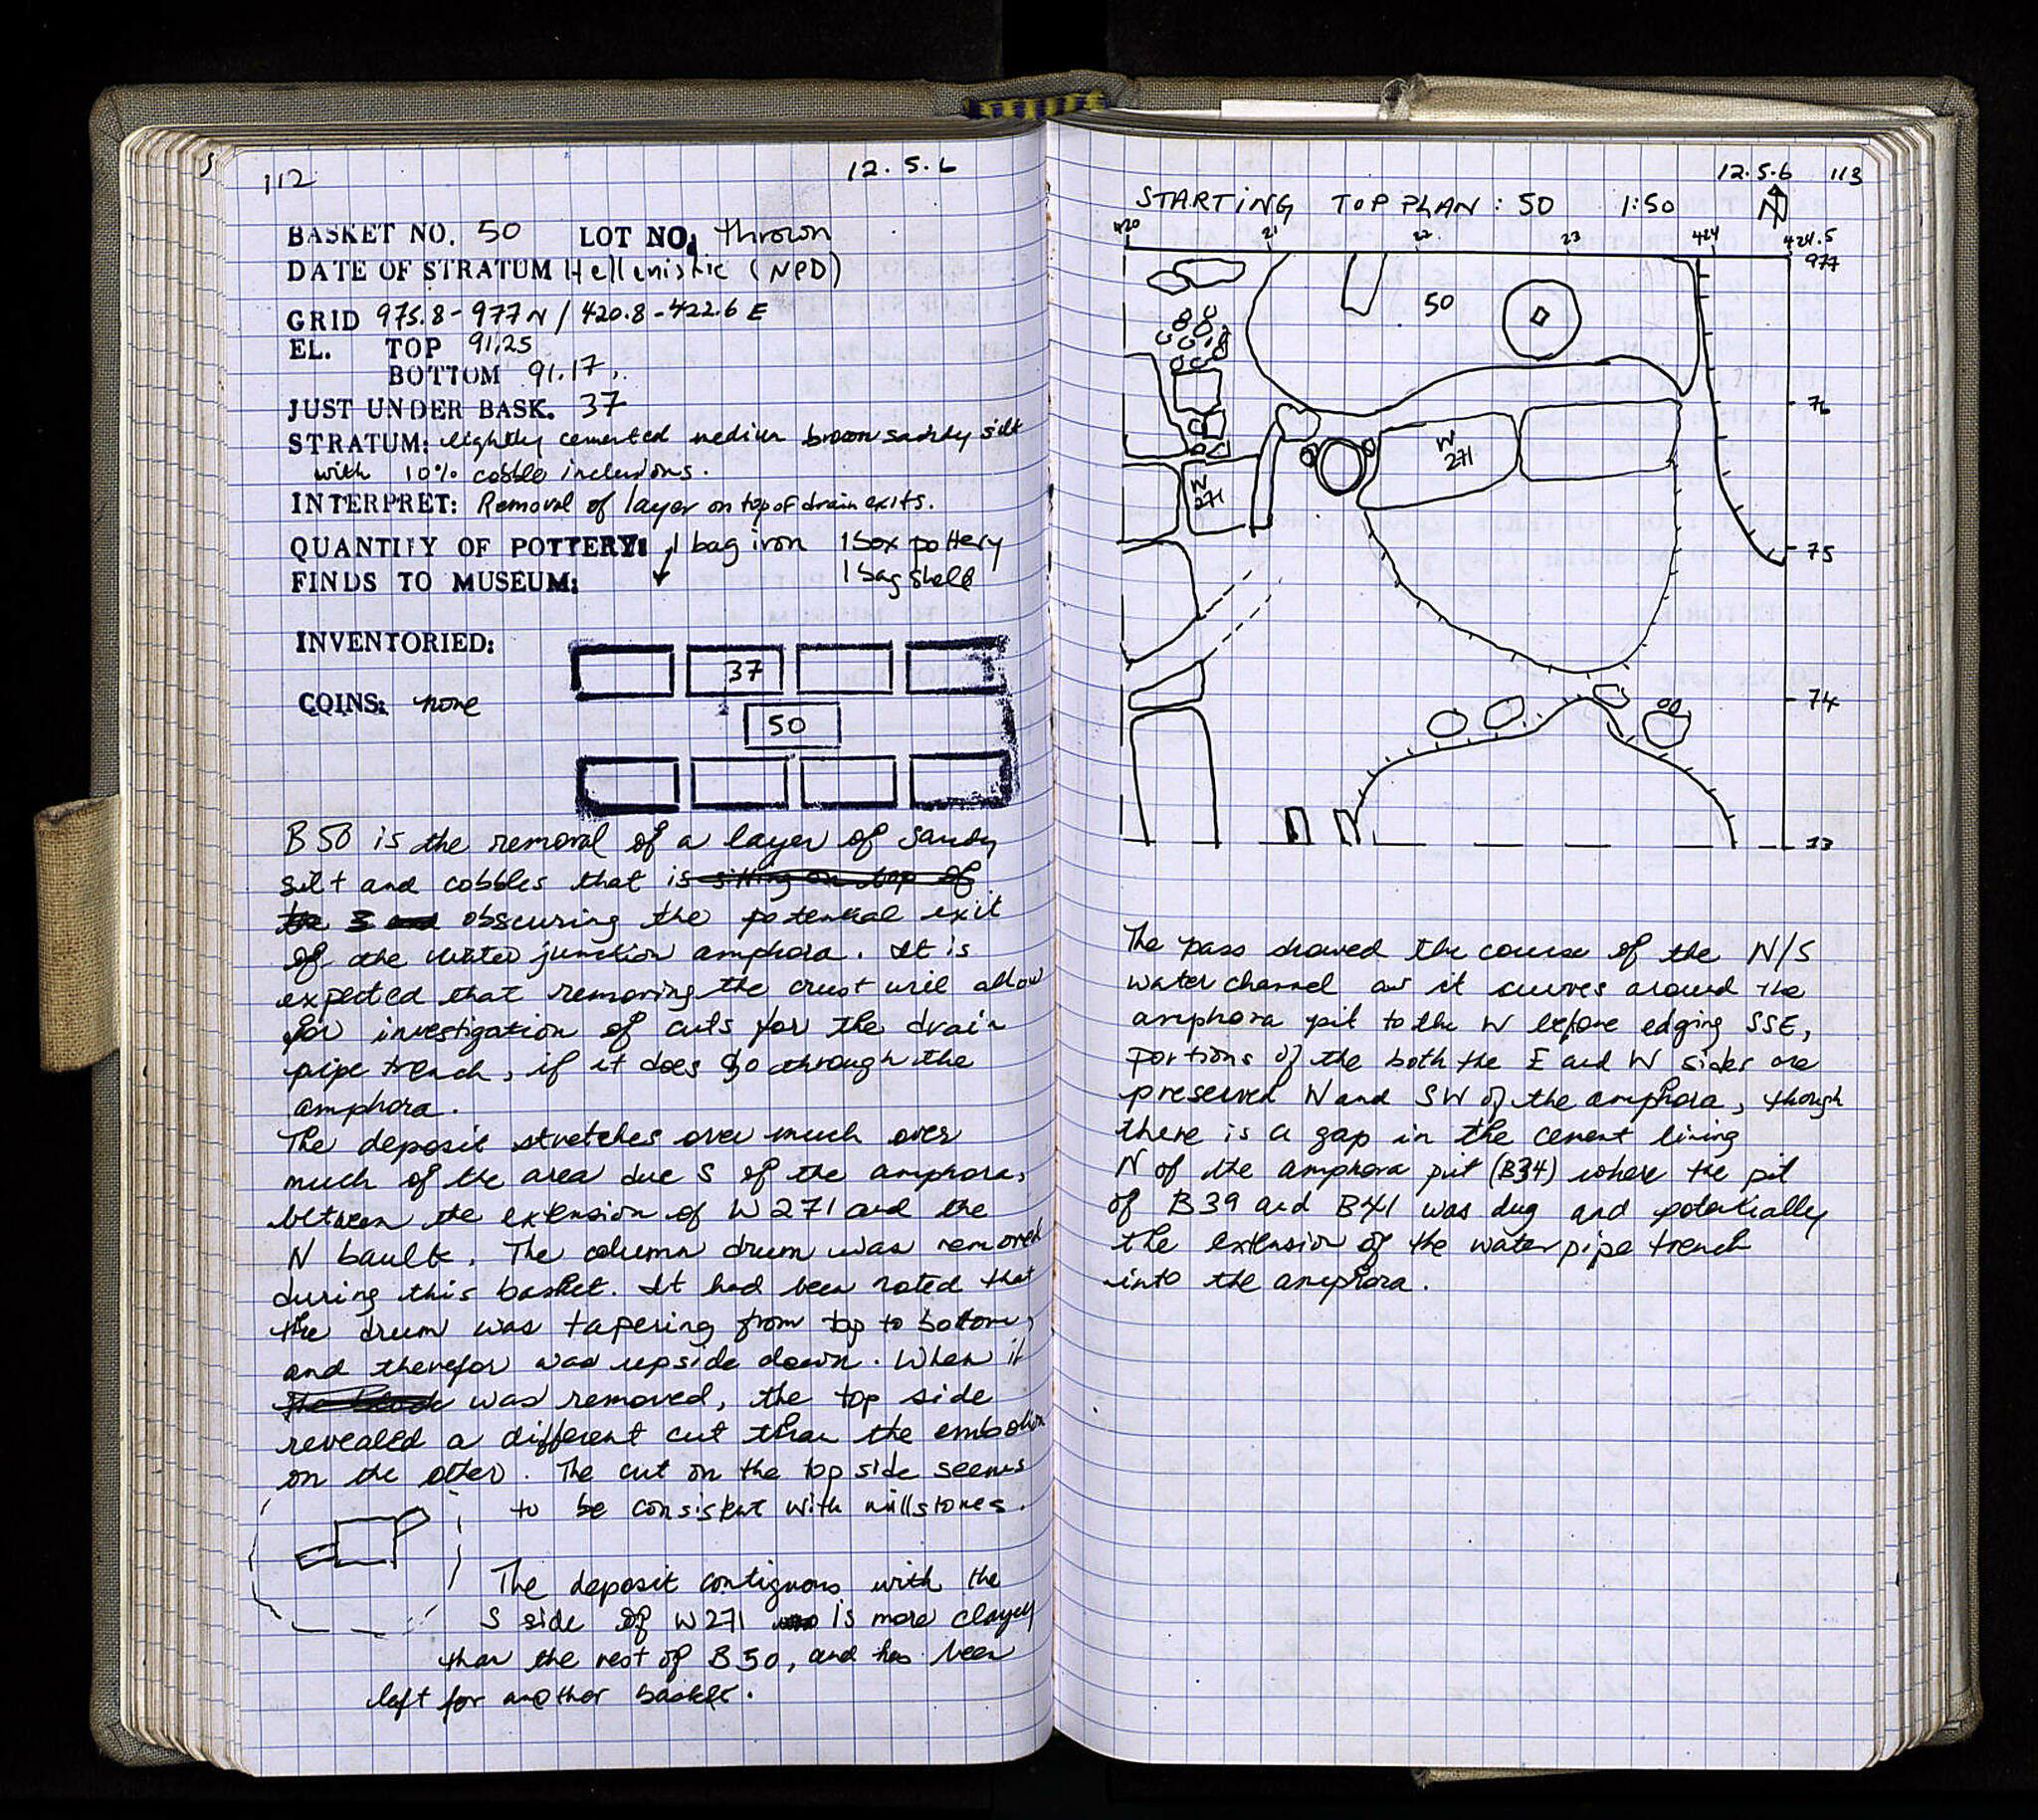 112
12.5.6
BASKET NO. 50 LOT NO. thrown
DATE OF STRATUM Hellenistic (NPD)
GRID 975.8 - 977 N / 420.8 - 422.6 E
EL. TOP 91.25
BOTTOM 91.17
JUST UNDER BASK. 37
STRATUM: lightly cemented medium brown sandy silt
with 10% cobble inclusions.
INTERPRET: Removal of layer on top of drain exits.
QUANTITY OF POTTERY: 1 bag iron 1 box pottery
FINDS TO MUSEUM: 1 bag shell
INVENTORIED:
37
COINS: none
50
B 50 is the removal of a layer of sandy
silt and cobbles that is sitting on top of
the obscuring the potential exit
of the water junction amphora. It is
expected that removing the crust will allow
for investigation of cuts for the drain
pipe trench, if it does go through the
amphora.
The deposit stretches over much over
much of the area due S of the amphora,
between the extension of W 271 and the
N baulk. The column drum was removed
during this basket. It had been noted that
the drum was tapering from top to bottom,
and therefor was upside down. When it
was removed, the top side
revealed a different cut than the embolion
on the other. The cut on the top side seems
to be consistent with millstones.
The deposit contiguous with the
S side of W 271 is more clayey
than the rest of B 50, and has been
left for another basket.
12.5.6 113
STARTING TOP PLAN : 50 1:50 N
420 21 22 23 424 424.5
977
50
76
W
271
W
271
75
74
73
The pass showed the course of the N/S
water channel as it curves around the
amphora pit to the W before edging SSE,
portions of the both the E and W sides are
preserved N and SW of the amphora, though
there is a gap in the cement lining
N of the amphora pit (B34) where the pit
of B39 and B41 was dug and potentially
the extension of the water pipe trench
into the amphora.